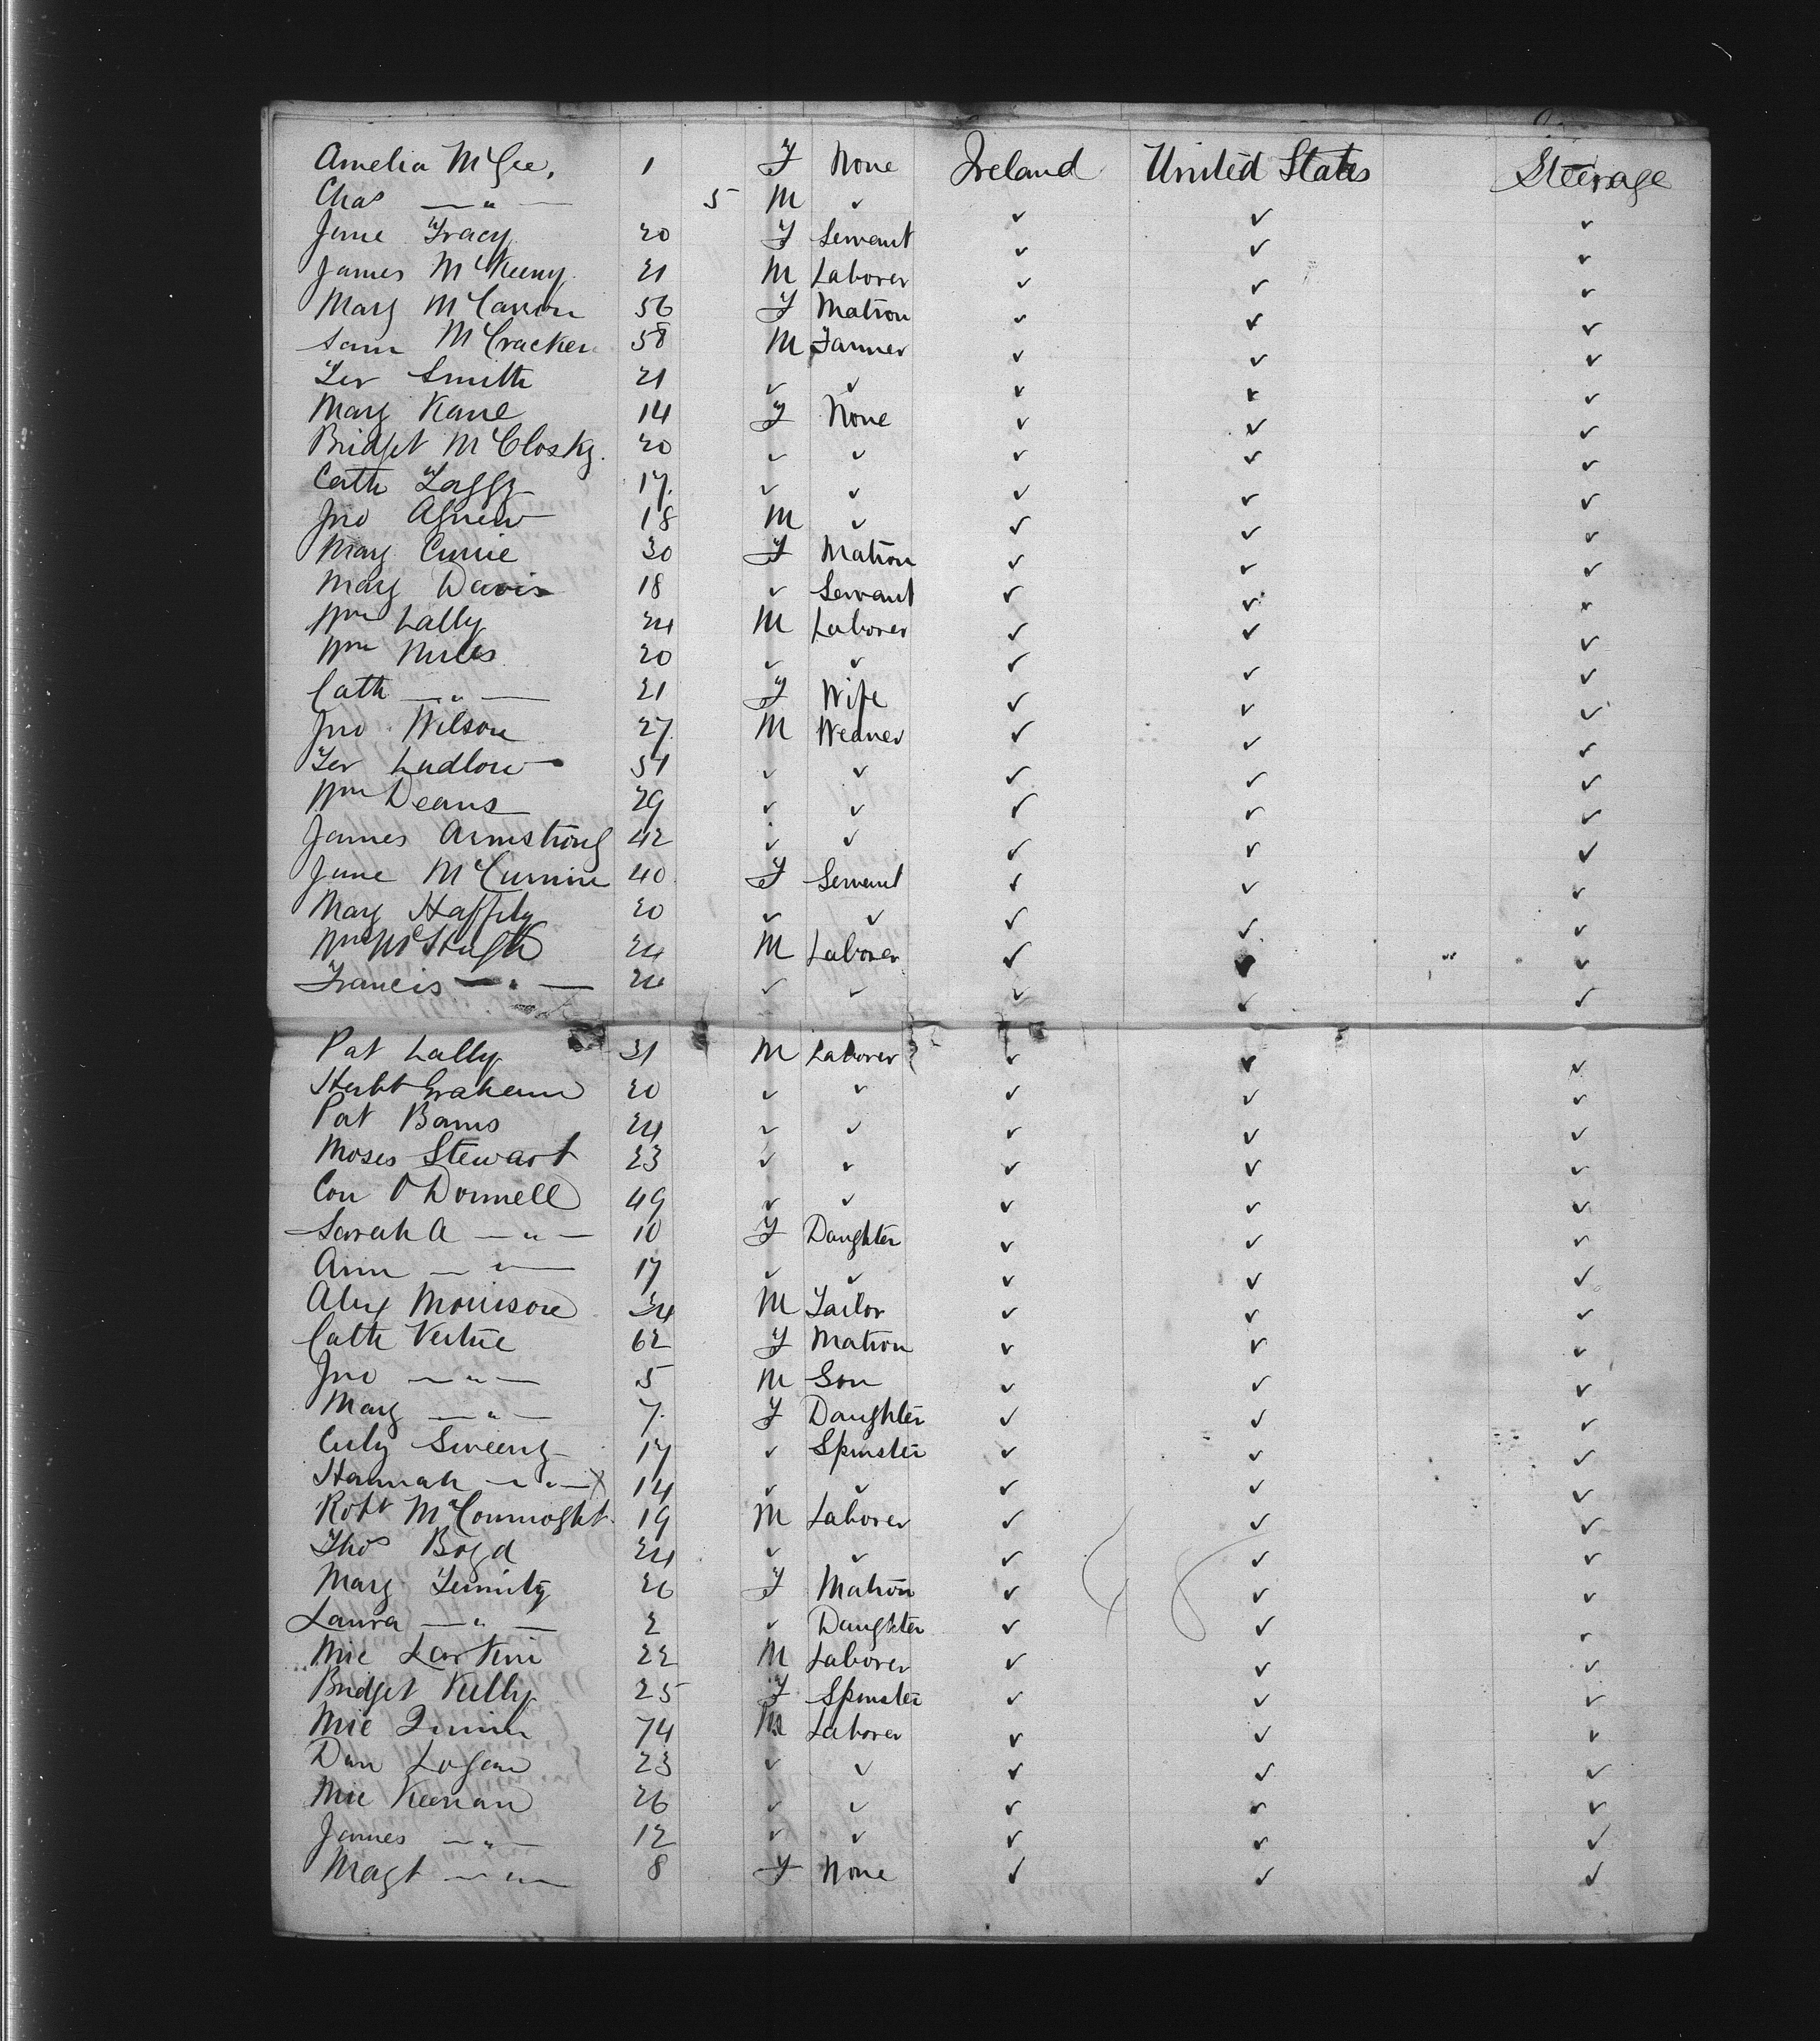 Amelia McGee, 1 F None Ireland United States Steerage
Chas — " — 5 M ✓ ✓ ✓ ✓
Jane Tracy 20 F Servant ✓ ✓ ✓
James McKeeny 21 M Laborer ✓ ✓ ✓
Mary McCarron 56 F Matron ✓ ✓ ✓
Sam McCracken 58 M Farmer ✓ ✓ ✓
Ter Smith 21 ✓ ✓ ✓ ✓ ✓
Mary Kane 14 F None ✓ ✓ ✓
Bridget McClosky. 20 ✓ ✓ ✓ ✓ ✓
Cath 17. ✓ ✓ ✓ ✓ ✓
Jno Agnew 18 M ✓ ✓ ✓ ✓
Mary Currie 30 F Matron ✓ ✓ ✓
Mary Davis 18 ✓ Servant ✓ ✓ ✓
Wm Lally 24 M Laborer ✓ ✓ ✓
Wm 20 ✓ ✓ ✓ ✓ ✓
Cath — " — 21 F Wife ✓ ✓ ✓
Jno Wilson 27 M Weaver ✓ ✓ ✓
Ter Ludlow 51 ✓ ✓ ✓ ✓ ✓
Wm Deans 29 ✓ ✓ ✓ ✓ ✓
James Armstrong 42 ✓ ✓ ✓ ✓ ✓
Jane 40 F Servant ✓ ✓ ✓
Mary Haffily 20 ✓ ✓ ✓ ✓ ✓
Wm McHugh 24 M Laborer ✓ ✓ ✓
Francis — " — 24 ✓ ✓ ✓ ✓ ✓
Pat Lally 31 M Laborer ✓ ✓ ✓
Herbt Graham 20 ✓ ✓ ✓ ✓ ✓
Pat 24 ✓ ✓ ✓ ✓ ✓
Moses Stewart 23 ✓ ✓ ✓ ✓ ✓
Con O'Donnell 49 ✓ ✓ ✓ ✓ ✓
Sarah A — " — 10 F Daughter ✓ ✓ ✓
Ann — " — 17 ✓ ✓ ✓ ✓ ✓
Alex Morrison 34 M Tailor ✓ ✓ ✓
Cath Vertue 62 F Matron ✓ ✓ ✓
Jno — " — 5 M Son ✓ ✓ ✓
Mary — " — 7. F Daughter ✓ ✓ ✓
Sweeny 17 ✓ Spinster ✓ ✓ ✓
Hannah — " — 14 ✓ ✓ ✓ ✓ ✓
Robt McConnoght 19 M Laborer ✓ ✓ ✓
Thos Boyd 24 ✓ ✓ ✓ ✓ ✓
Mary 26 F Matron ✓ ✓ ✓
Laura — " — 2 ✓ Daughter ✓ ✓ ✓
Mic 22 M Laborer ✓ ✓ ✓
Bridget Kelly 25 F Spinster ✓ ✓ ✓
Mic 74 M Laborer ✓ ✓ ✓
Dan Logan 23 ✓ ✓ ✓ ✓ ✓
Mic Keenan 26 ✓ ✓ ✓ ✓ ✓
James — " — 12 ✓ ✓ ✓ ✓ ✓
Magt — " — 8 F None ✓ ✓ ✓